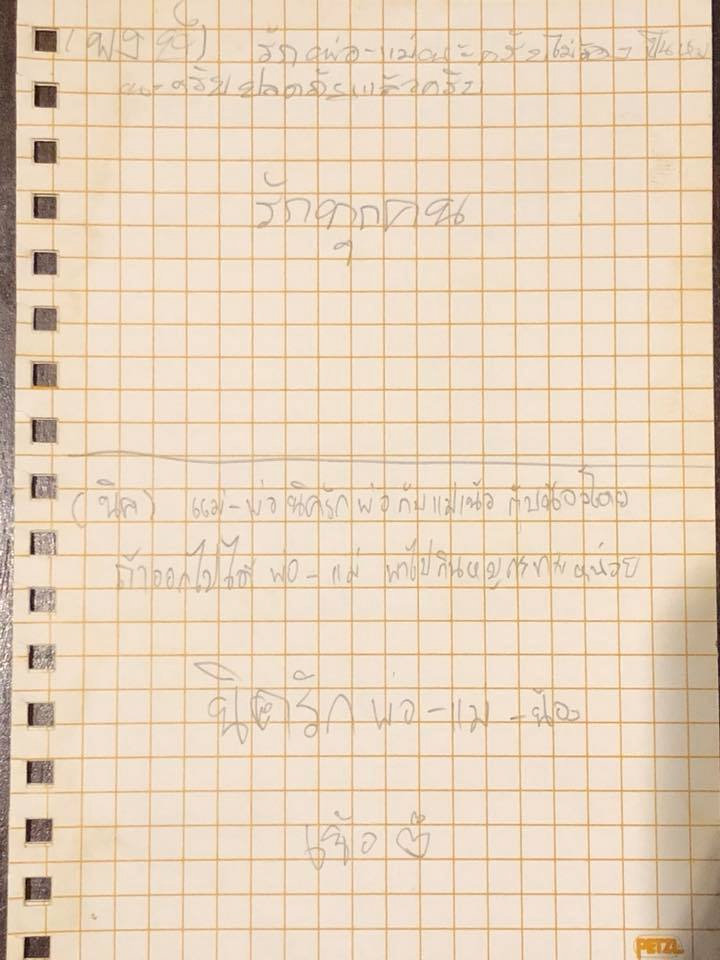 (พงษ์) รักพ่อ-แม่นะครับไม่ต้อง เป็นห่วง
นะครับปลอดภัยแล้วครับ
รักทุกคน
(นิค) แม่-พ่อ นิครักพ่อกับแม่เน้อ กับน้องโตย
ถ้าออกไปได้ พ่อ-แม่ พาไปกินหมูกระทะหน่อย
นิครัก พ่อ-แม่-น้อง
เน้อ
PETZL